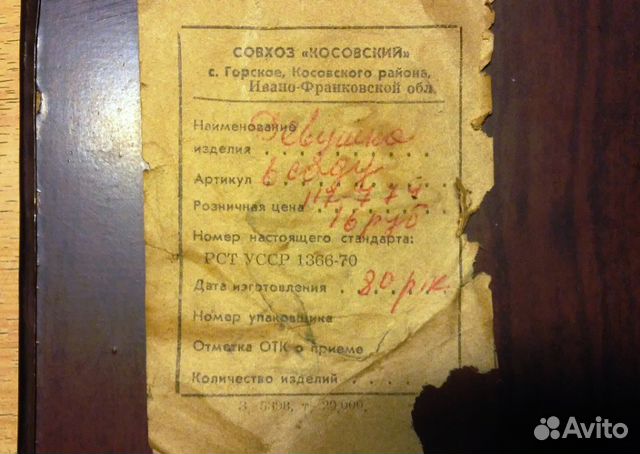 СОВХОЗ «КОСОВСКИЙ»
с. Горское, Косовского района,
Ивано-Франковской обл.
Наименование Девушка
изделия . . . . . . . .
Артикул в саду
Розничная цена 16 руб
Номер настоящего стандарта:
РСТ УССР 1366-70
Дата изготовления . 80 рік.
Номер упаковщика
Отметка ОТК о приеме
Количество изделий . . . .
З. 5398, т. 20.000.
Avito